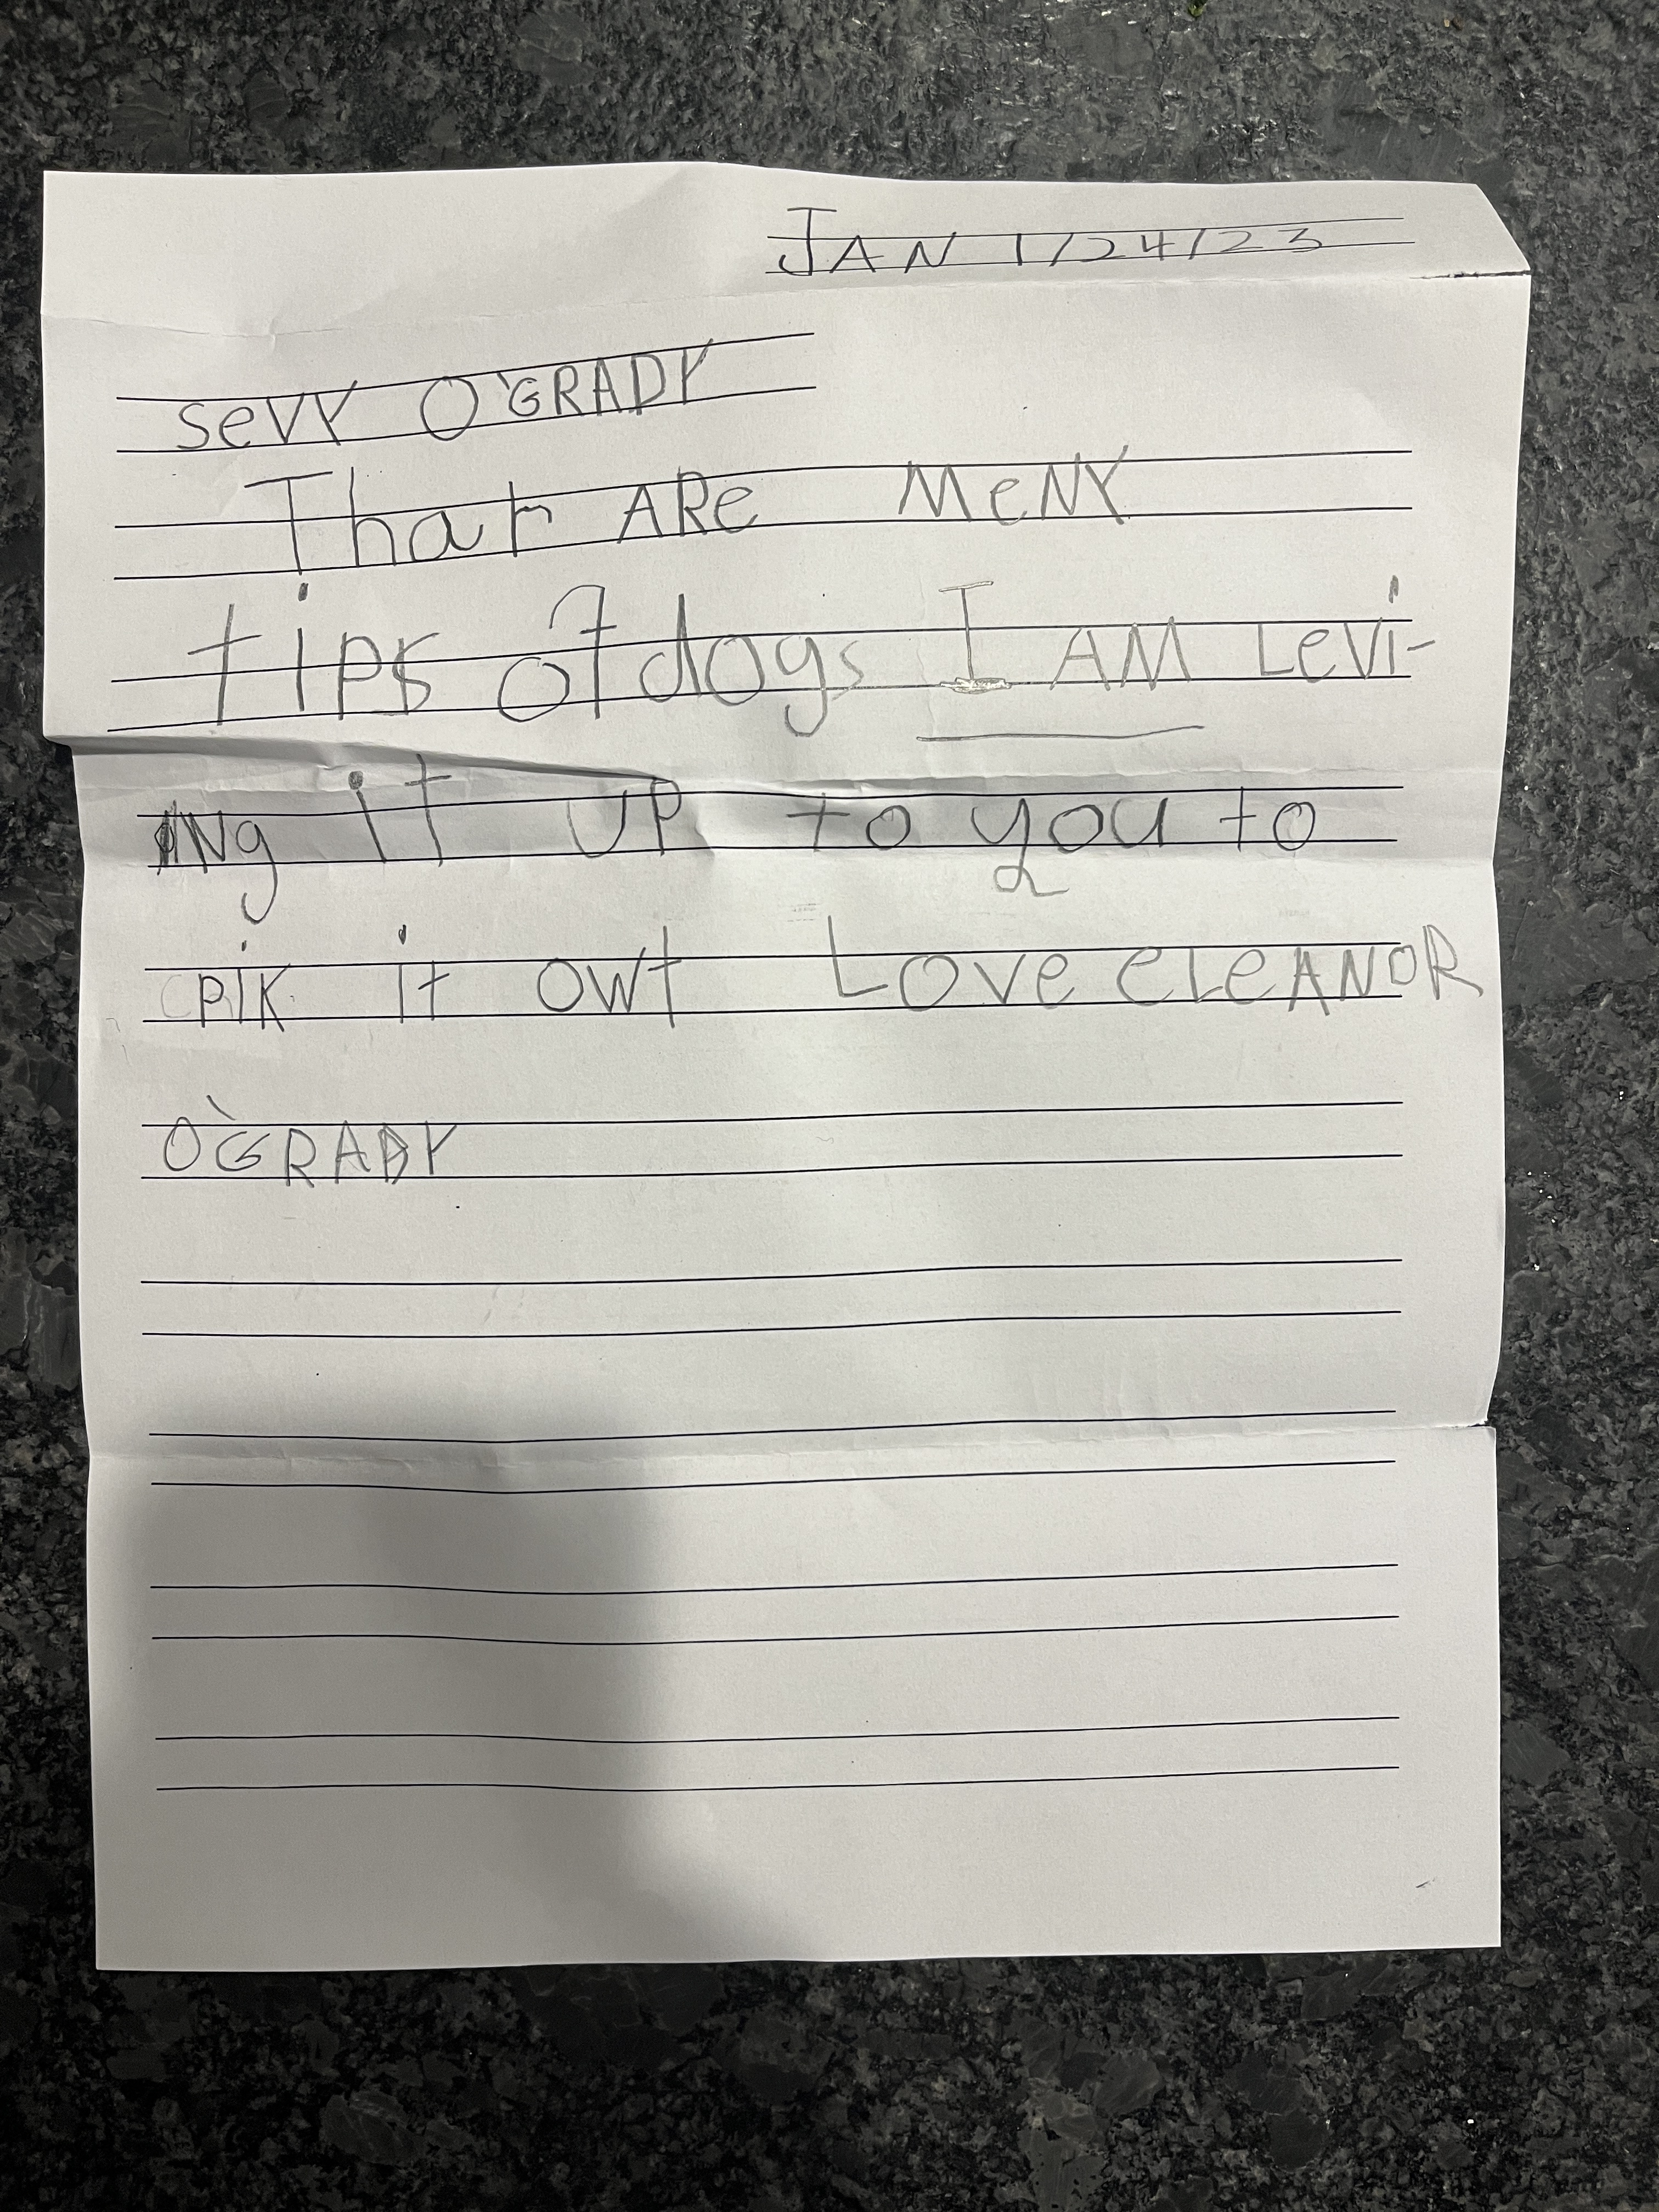 JAN 1/24/23
SeVY O'GRADY
That ARe MeNY
tips of dogs I AM LeVi-
iNg it UP to you to
PiK it owt LOVe eLeANOR
O'GRADY